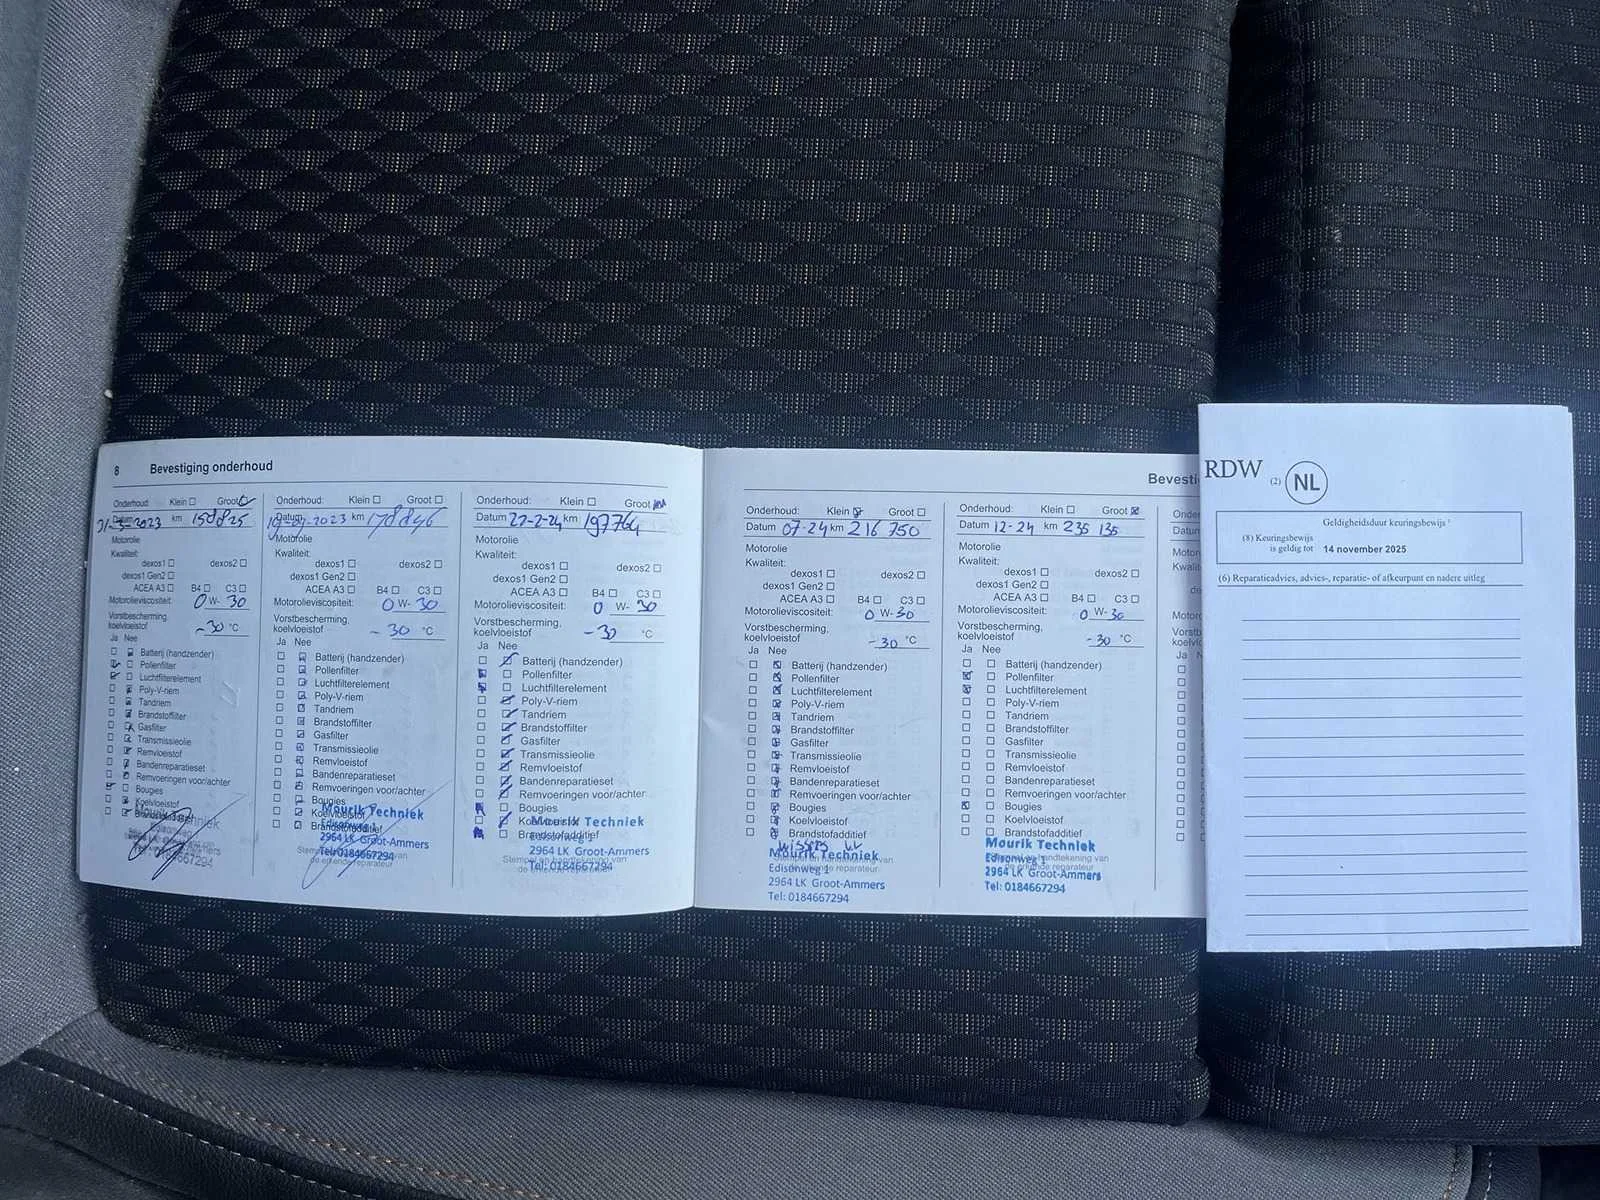 8 Bevestiging onderhoud
Onderhoud: Klein Groot
Datum 21-3-2023 km 158825
Motorolie
Kwaliteit:
dexos1 dexos2
dexos1 Gen2
ACEA A3 B4 C3
Motorolieviscositeit: 0 W- 30
Vorstbescherming,
koelvloeistof -30 °C
Ja Nee
Batterij (handzender)
Pollenfilter
Luchtfilterelement
Poly-V-riem
Tandriem
Brandstoffilter
Gasfilter
Transmissieolie
Remvloeistof
Bandenreparatieset
Remvoeringen voor/achter
Bougies
Koelvloeistof
Mourik Techniek
Onderhoud: Klein Groot
Datum 2023 km 178846
Motorolie
Kwaliteit:
dexos1 dexos2
dexos1 Gen2
ACEA A3 B4 C3
Motorolieviscositeit: 0 W- 30
Vorstbescherming,
koelvloeistof - 30 °C
Ja Nee
Batterij (handzender)
Pollenfilter
Luchtfilterelement
Poly-V-riem
Tandriem
Brandstoffilter
Gasfilter
Transmissieolie
Remvloeistof
Bandenreparatieset
Remvoeringen voor/achter
Bougies
Mourik Techniek
Koelvloeistof
Edisonweg 1
Brandstofadditief
2964 LK Groot-Ammers
Tel: 0184667294
Onderhoud: Klein Groot
Datum 27-2-24 km 197764
Motorolie
Kwaliteit:
dexos1 dexos2
dexos1 Gen2
ACEA A3 B4 C3
Motorolieviscositeit: 0 W- 30
Vorstbescherming,
koelvloeistof -30 °C
Ja Nee
Batterij (handzender)
Pollenfilter
Luchtfilterelement
Poly-V-riem
Tandriem
Brandstoffilter
Gasfilter
Transmissieolie
Remvloeistof
Bandenreparatieset
Remvoeringen voor/achter
Bougies
Koelvloeistof
Mourik Techniek
Brandstofadditief
Edisonweg 1
2964 LK Groot-Ammers
Stempel en handtekening van
de erkende reparateur
Tel: 0184667294
Bevesti
Onderhoud: Klein Groot
Datum 07-24 km 216 750
Motorolie
Kwaliteit:
dexos1 dexos2
dexos1 Gen2
ACEA A3 B4 C3
Motorolieviscositeit: 0 W-30
Vorstbescherming,
koelvloeistof -30 °C
Ja Nee
Batterij (handzender)
Pollenfilter
Luchtfilterelement
Poly-V-riem
Tandriem
Brandstoffilter
Gasfilter
Transmissieolie
Remvloeistof
Bandenreparatieset
Remvoeringen voor/achter
Bougies
Koelvloeistof
Brandstofadditief
Mourik Techniek
Edisonweg 1
2964 LK Groot-Ammers
Tel: 0184667294
Onderhoud: Klein Groot
Datum 12-24 km 235 135
Motorolie
Kwaliteit:
dexos1 dexos2
dexos1 Gen2
ACEA A3 B4 C3
Motorolieviscositeit: 0 W-30
Vorstbescherming,
koelvloeistof -30 °C
Ja Nee
Batterij (handzender)
Pollenfilter
Luchtfilterelement
Poly-V-riem
Tandriem
Brandstoffilter
Gasfilter
Transmissieolie
Remvloeistof
Bandenreparatieset
Remvoeringen voor/achter
Bougies
Koelvloeistof
Brandstofadditief
Mourik Techniek
Edisonweg 1
2964 LK Groot-Ammers
Tel: 0184667294
RDW (2) NL
Geldigheidsduur keuringsbewijs ¹
(8) Keuringsbewijs
is geldig tot 14 november 2025
(6) Reparatieadvies, advies-, reparatie- of afkeurpunt en nadere uitleg